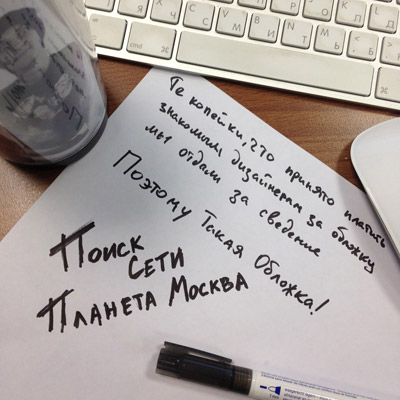 Те копейки, что принято платить
знакомым дизайнерам за обложку
мы отдали за сведение
Поэтому Такая Обложка!
Поиск
Сети
Планета Москва